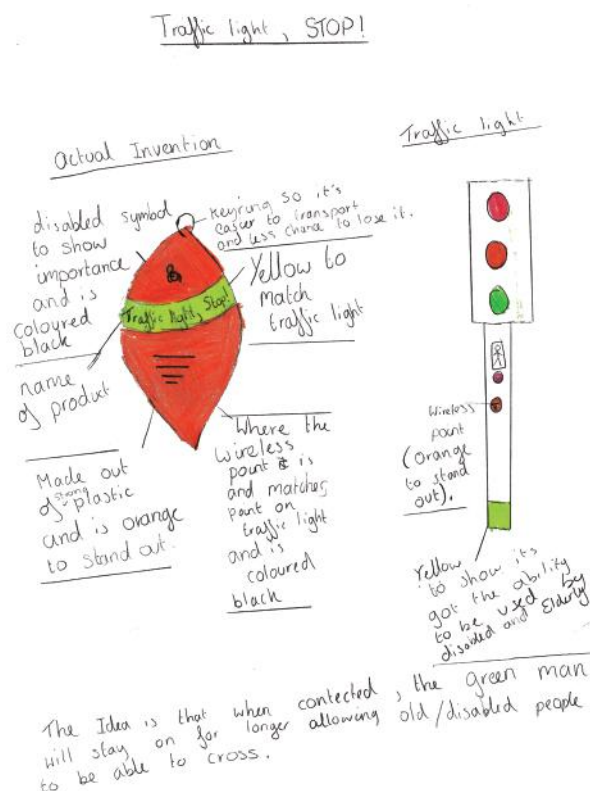 Traffic light, STOP!
Actual Invention
disabled symbol
to show
importance
and is
coloured
black
Keyring so it's
easier to transport
and less chance to lose it.
Yellow to
match
traffic light
Traffic light, Stop!
name
of product
Made out
of strong plastic
and is orange
to stand out.
Where the
wireless
point is
and matches
point on
traffic light
and is
coloured
black
Traffic light
Wireless
point
(orange
to stand
out).
Yellow
to show it's
got the ability
to be used by
disabled and Elderly
The Idea is that when contected, the green man
will stay on for longer allowing old/disabled people
to be able to cross.